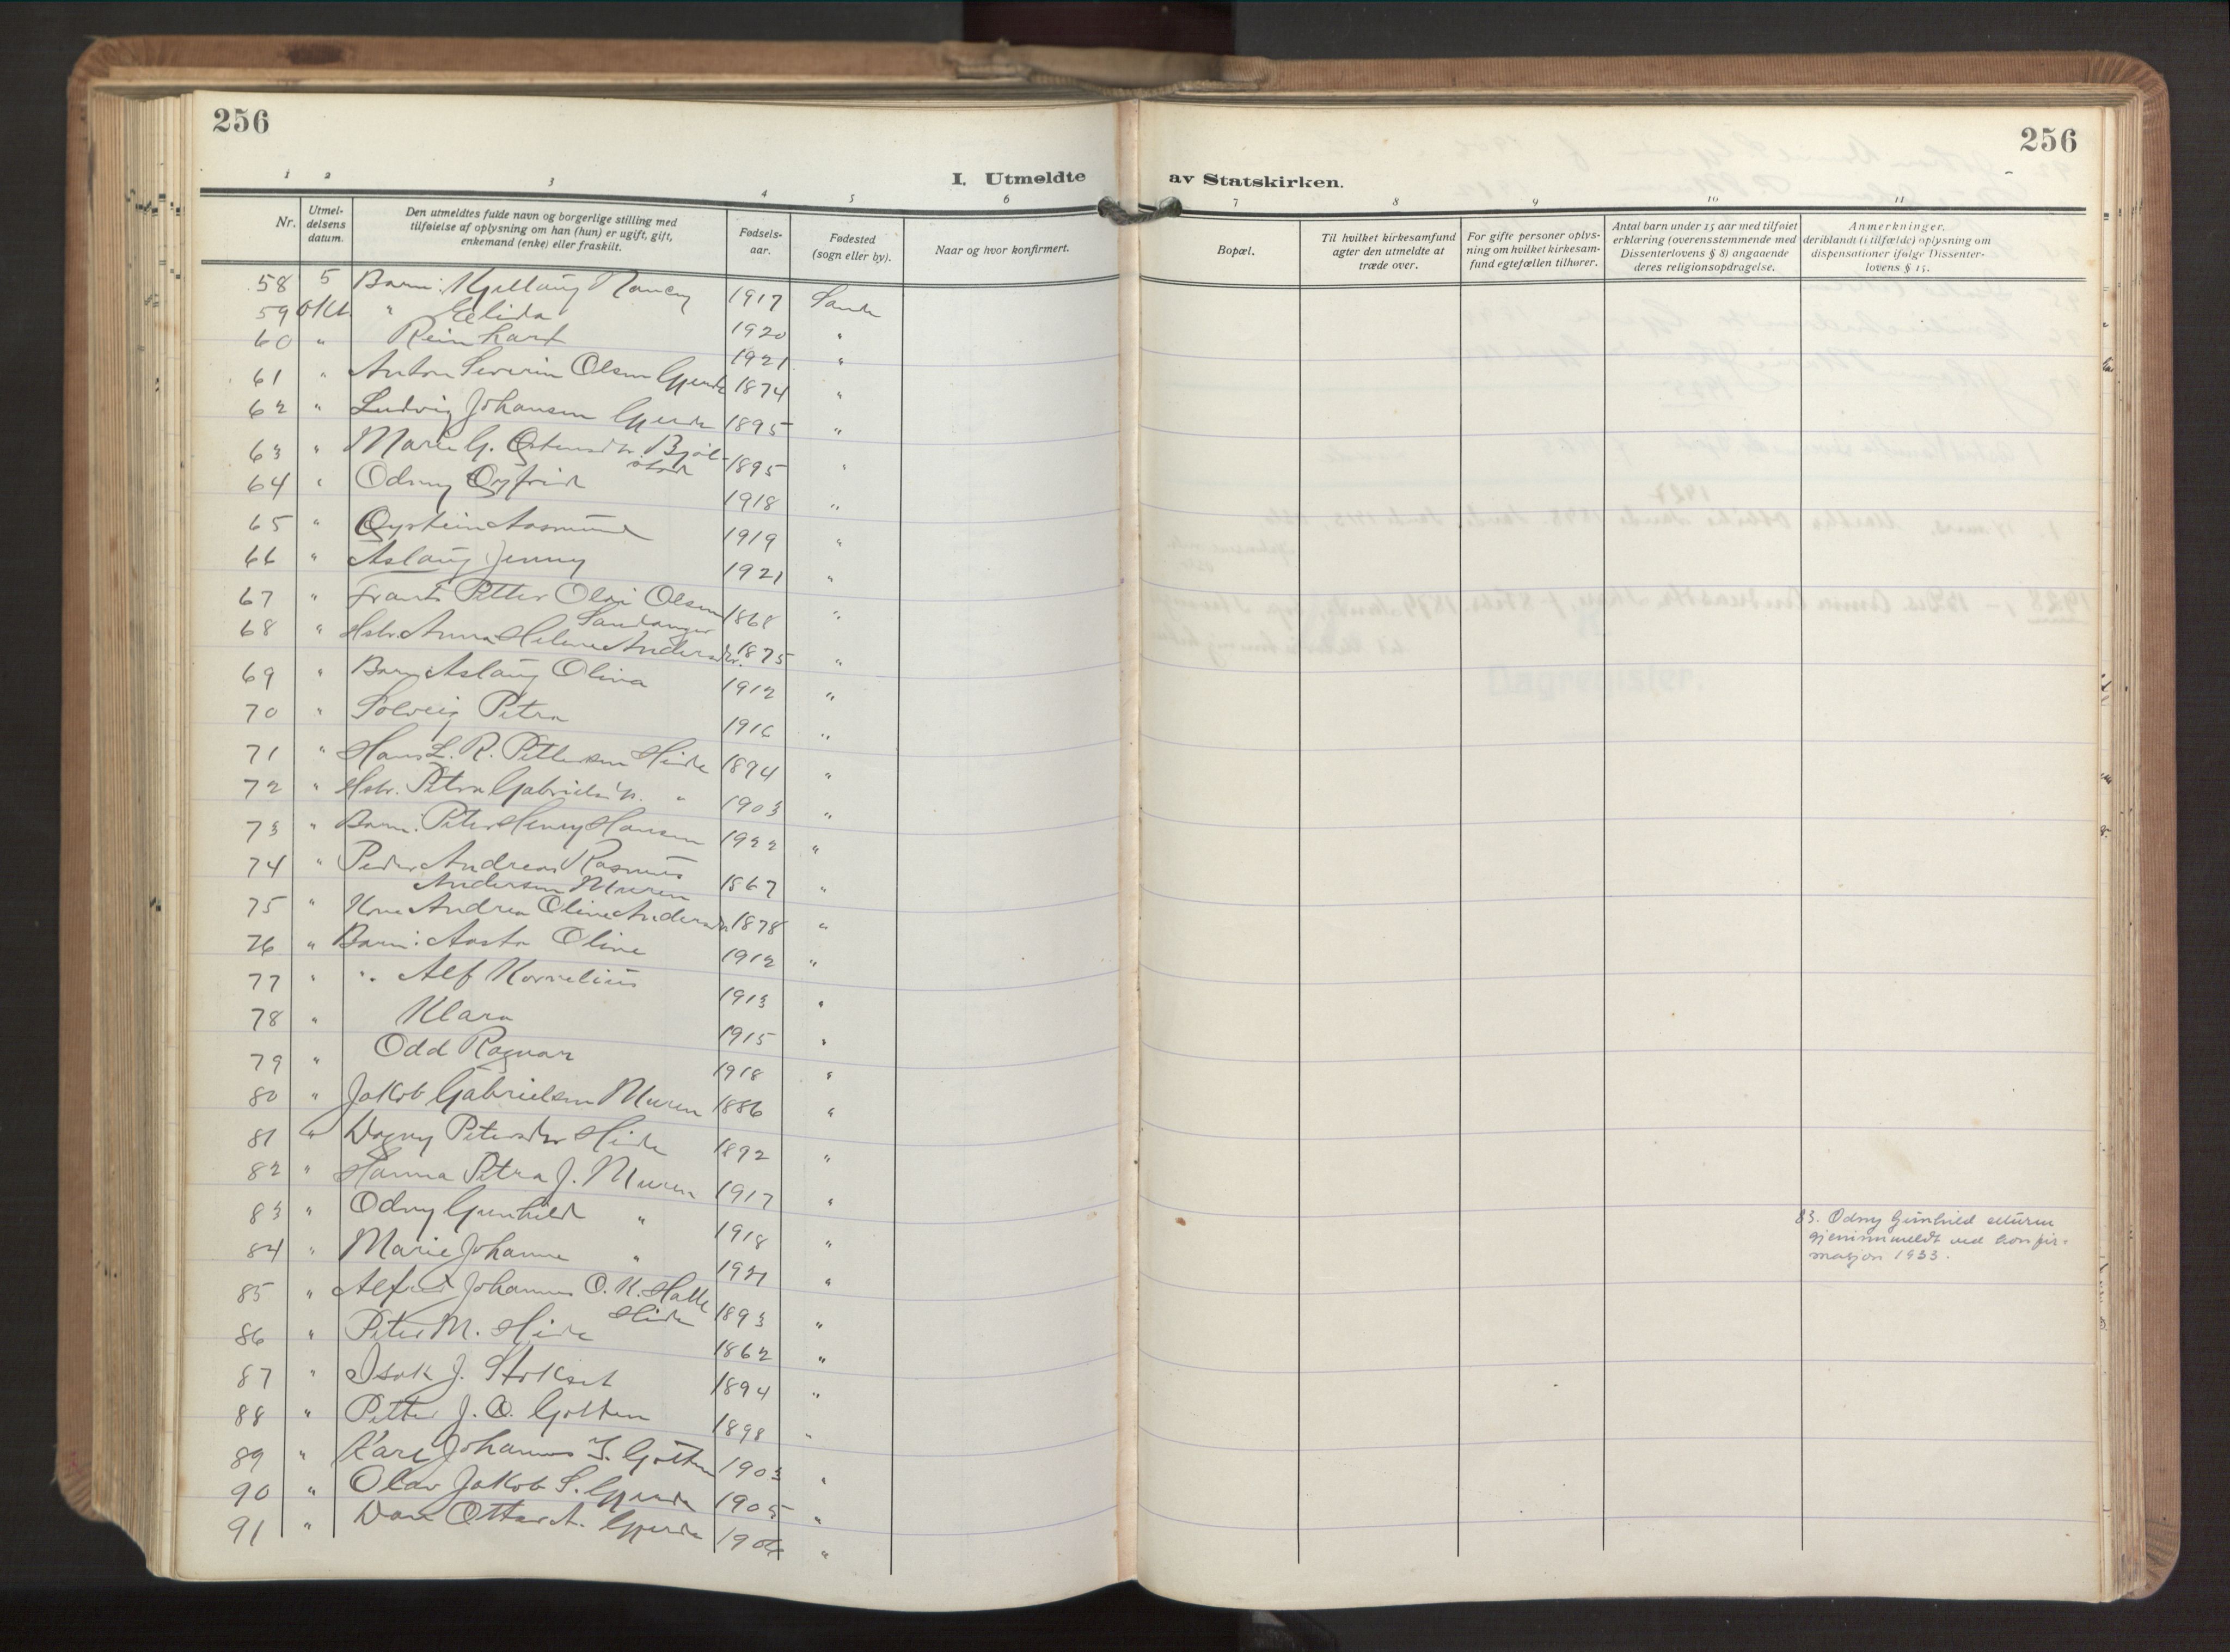 256
256
I. Utmeldte av Statskirken.
1 2 3 4 5 6 7 8 9 10 11
Nr.
Utmeldelsens datum.
Den utmeldtes fulde navn og borgerlige stilling med tilføielse af oplysning om han (hun) er ugift, gift, enkemand (enke) eller fraskilt.
Fødselsaar.
Fødested (sogn eller by).
Naar og hvor konfirmert.
Bopæl.
Til hvilket kirkesamfund agter den utmeldte at træde over.
For gifte personer oplysning om hvilket kirkesamfund egtefællen tilhører.
Antal barn under 15 aar med tilføiet erklæring (overensstemmende med Dissenterlovens § 8) angaaende deres religionsopdragelse.
Anmerkninger, deriblandt (i tilfælde) oplysning om dispensationer ifølge Dissenterlovens § 15.
58 5 Barn: Kjellaug Nancy 1917 Sande
59 Okt. " Elida 1920 "
60 " Reinhart 1921 "
61 " Anton Severin Olsen Gjerde 1874 "
62 " Ludvig Johansen Gjerde 1895 "
63 " Marie G. 1895 "
64 " Odny Øyfrid 1918 "
65 " Øystein Aasmund 1919 "
66 " Aslaug Jenny 1921 "
67 " Frants Petter Olai Olsen Sandanger 1868 "
68 " Hstr. Anna Helene Andersdtr. 1875 "
69 " Barn: Aslaug Olina 1912 "
70 " Solveig Petra 1916 "
71 " Hans L. R. Pettersen Heide 1894 "
72 " Hstr. Petra Gabrielsd. " 1903 "
73 " Barn: Peter Henry Hansen 1922 "
74 " Peder Andreas Rasmus Andersen Muren 1867 "
75 " Kone Andrea Oline Andersdtr. 1878 "
76 " Barn: Aasta Oline 1912 "
77 " ". Alf Kornelius 1913 "
78 " Klara 1915 "
79 " Odd Ragnar 1918 "
80 " Jakob Gabrielsen Muren 1886 "
81 " Dagny Petersdtr Heide 1892 "
82 " Hanna Petra J. Muren 1917 "
83 " Odny Gunhild " 1918 "
83. Odny Gunhild Muren
gjeninnmeldt ved konfir-
masjon 1933.
84 " Marie Johanne " 1921 "
85 " Alfred Johannes O. K. Heide 1893 "
86 " Peter M. Heide 1862 "
87 " Isak J. Stokset 1894 "
88 " Petter J. O. Gotten 1898 "
89 " Karl Johannes J. Gotten 1903 "
90 " Olav Jakob S. Gjerde 1905 "
91 " Ottar A. Gjerde 1904 "